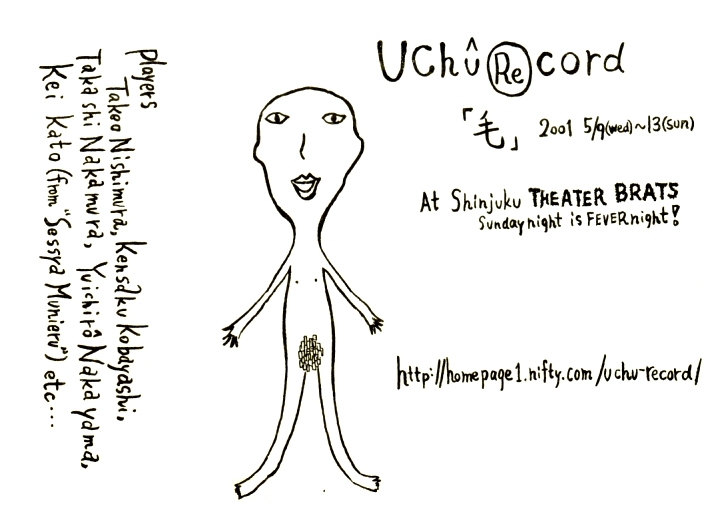 Uchû Record
「毛」 2001 5/9(wed)~13(sun)
At Shinjuku THEATER BRATS
Sunday night is FEVER night!
http://homepage1.nifty.com/uchu-record/
Players
Takeo Nishimura, Kensaku Kobayashi,
Takashi Nakamura, Yuichirô Nakayama,
Kei Kato (from "Sessya Munieru") etc...